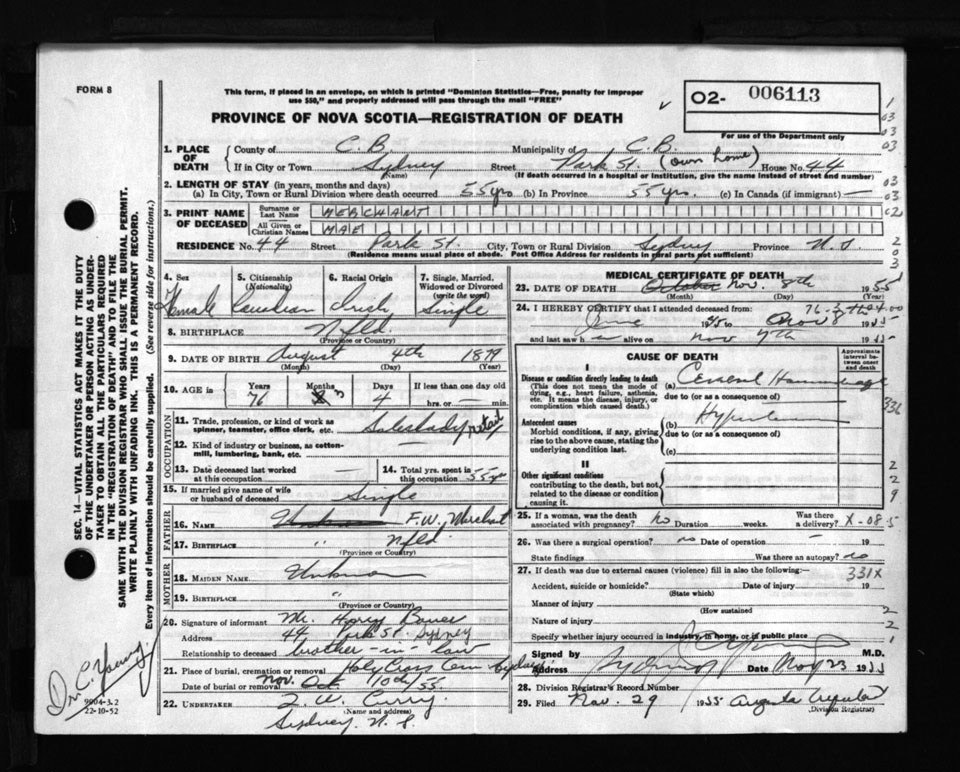 FORM 8
This form, if placed in an envelope, on which is printed "Dominion Statistics—Free, penalty for improper
use $50," and properly addressed will pass through the mail "FREE"
O2- 006113
PROVINCE OF NOVA SCOTIA—REGISTRATION OF DEATH
For use of the Department only
1. PLACE OF DEATH
County of C.B. Municipality of C.B.
If in City or Town Sydney Street Park St. (own home) House No. 44
(Name) (If death occurred in a hospital or institution, give the name instead of street and number)
2. LENGTH OF STAY (in years, months and days)
(a) In City, Town or Rural Division where death occurred 55 yrs (b) In Province 55 yrs. (c) In Canada (if immigrant) —
3. PRINT NAME OF DECEASED
Surname or Last Name MERCHANT
All Given or Christian Names MAE
RESIDENCE No. 44 Street Park St. City, Town or Rural Division Sydney Province N.S.
(Residence means usual place of abode. Post Office Address for residents in rural parts not sufficient)
4. Sex Female
5. Citizenship (Nationality) Canadian
6. Racial Origin Irish
7. Single, Married, Widowed or Divorced (write the word) Single
8. BIRTHPLACE Nfld.
(Province or Country)
9. DATE OF BIRTH August 4th 1879
(Month) (Day) (Year)
10. AGE in Years 76 Months 3 Days 4 If less than one day old
hrs. or — min.
OCCUPATION
11. Trade, profession, or kind of work as spinner, teamster, office clerk, etc. Saleslady, retail
12. Kind of industry or business, as cotton-mill, lumbering, bank, etc.
13. Date deceased last worked at this occupation —
14. Total yrs. spent in this occupation 55 yrs
15. If married give name of wife or husband of deceased Single
FATHER
16. NAME F.W. Merchant
17. BIRTHPLACE " Nfld.
(Province or Country)
MOTHER
18. MAIDEN NAME Unknown
19. BIRTHPLACE "
(Province or Country)
20. Signature of informant Mr. Harry
Address 44 Park St. Sydney
Relationship to deceased brother-in-law
21. Place of burial, cremation or removal Holy Cross Cem Sydney
Date of burial or removal Nov. Oct 10th/55.
22. UNDERTAKER Curry
(Name and address)
Sydney, N.S.
MEDICAL CERTIFICATE OF DEATH
23. DATE OF DEATH October Nov. 8th 1955
(Month) (Day) (Year)
24. I HEREBY CERTIFY that I attended deceased from:
to Nov 8 1955
and last saw h alive on Nov 7th 1955
CAUSE OF DEATH
Approximate interval between onset and death
I
Disease or condition directly leading to death
(This does not mean the mode of dying, e.g., heart failure, asthenia, etc. It means the disease, injury, or complication which caused death.)
(a)
due to (or as a consequence of)
Antecedent causes
Morbid conditions, if any, giving rise to the above cause, stating the underlying condition last.
(b)
due to (or as a consequence of)
(c)
II
Other significant conditions contributing to the death, but not related to the disease or condition causing it.
25. If a woman, was the death associated with pregnancy? no Duration weeks. Was there a delivery?
X-08-5
26. Was there a surgical operation? no Date of operation — 19
State findings Was there an autopsy? no
27. If death was due to external causes (violence) fill in also the following:— 331X
Accident, suicide or homicide? Date of injury 19
(State which)
Manner of injury
(How sustained)
Nature of injury
Specify whether injury occurred in industry, in home, or in public place
Signed by M.D.
Address Sydney Date Nov 23 1955
28. Division Registrar's Record Number
29. Filed Nov. 29 1955 Augusta
(Division Registrar)
SEC. 14—VITAL STATISTICS ACT MAKES IT THE DUTY
OF THE UNDERTAKER OR PERSON ACTING AS UNDER-
TAKER TO OBTAIN ALL THE PARTICULARS REQUIRED
IN THE "REGISTRATION OF DEATH" AND TO FILE THE
SAME WITH THE DIVISION REGISTRAR WHO SHALL ISSUE THE BURIAL PERMIT.
WRITE PLAINLY WITH UNFADING INK. THIS IS A PERMANENT RECORD.
Every item of information should be carefully supplied. (See reverse side for instructions.)
Dr. C. Young
9004-3.2
22-10-52